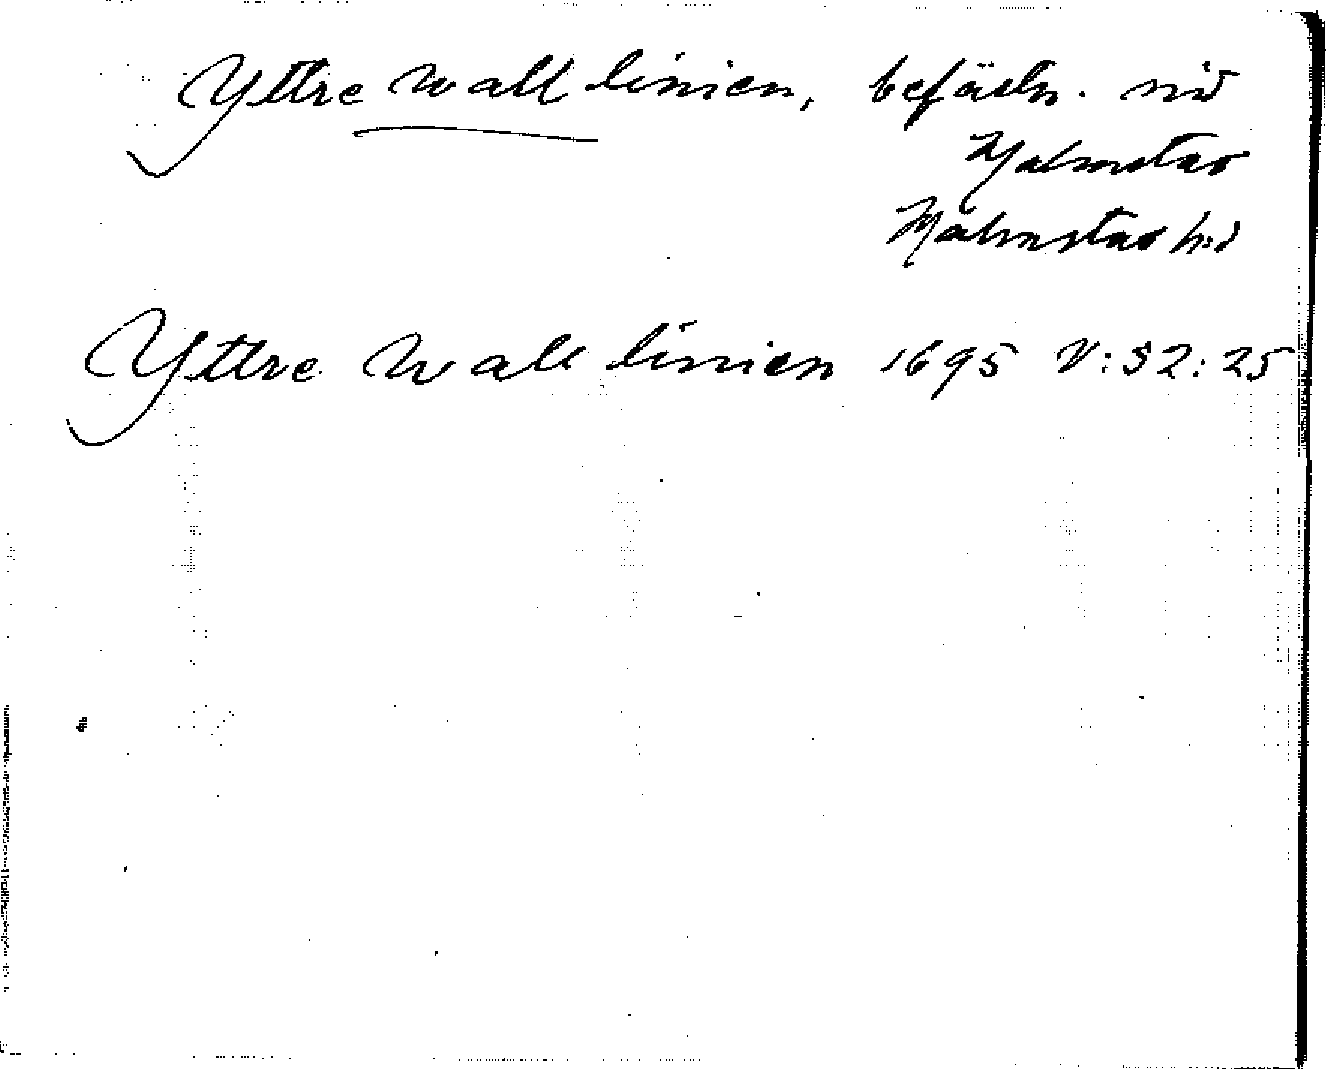 Yttre wall linien, befästn. vid
Halmstad
Halmstad hd
Yttre Wall linien 1695 V:52:25